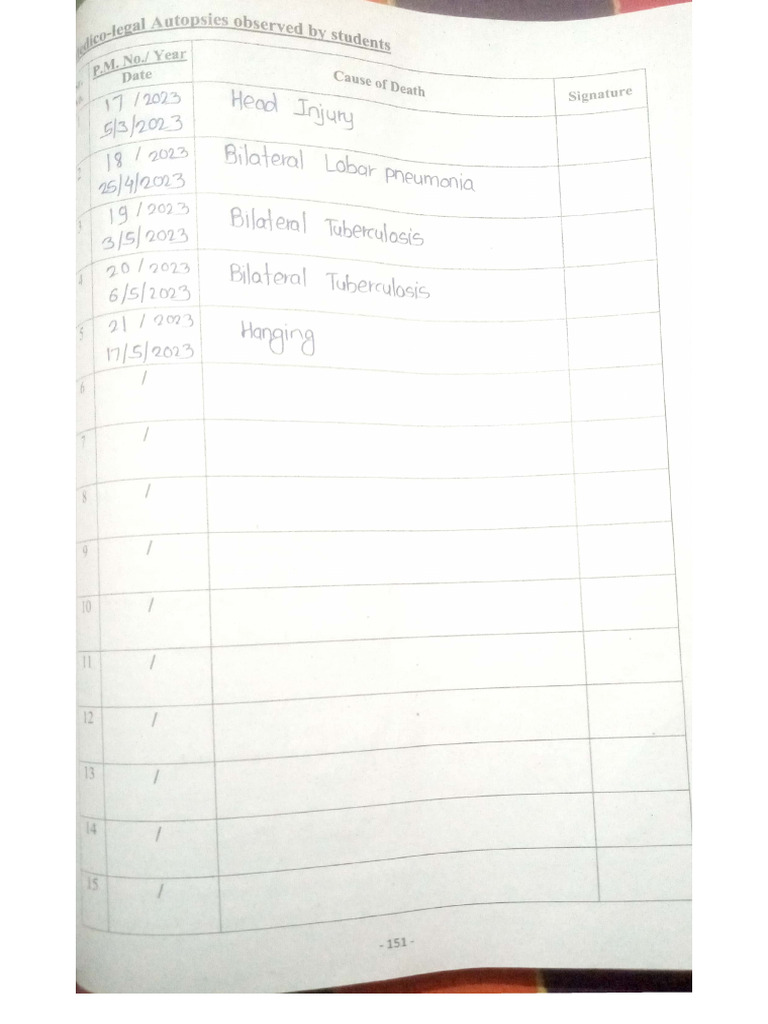 Medico-legal Autopsies observed by students
P.M. No./ Year
Date
Cause of Death
Signature
17 / 2023
5/3/2023
Head Injury
2
18 / 2023
25/4/2023
Bilateral Lobar pneumonia
3
19 / 2023
3/5/2023
Bilateral Tuberculosis
4
20 / 2023
6/5/2023
Bilateral Tuberculosis
5
21 / 2023
17/5/2023
Hanging
6 /
7 /
8 /
9 /
10 /
11 /
12 /
13 /
14 /
15 /
- 151 -